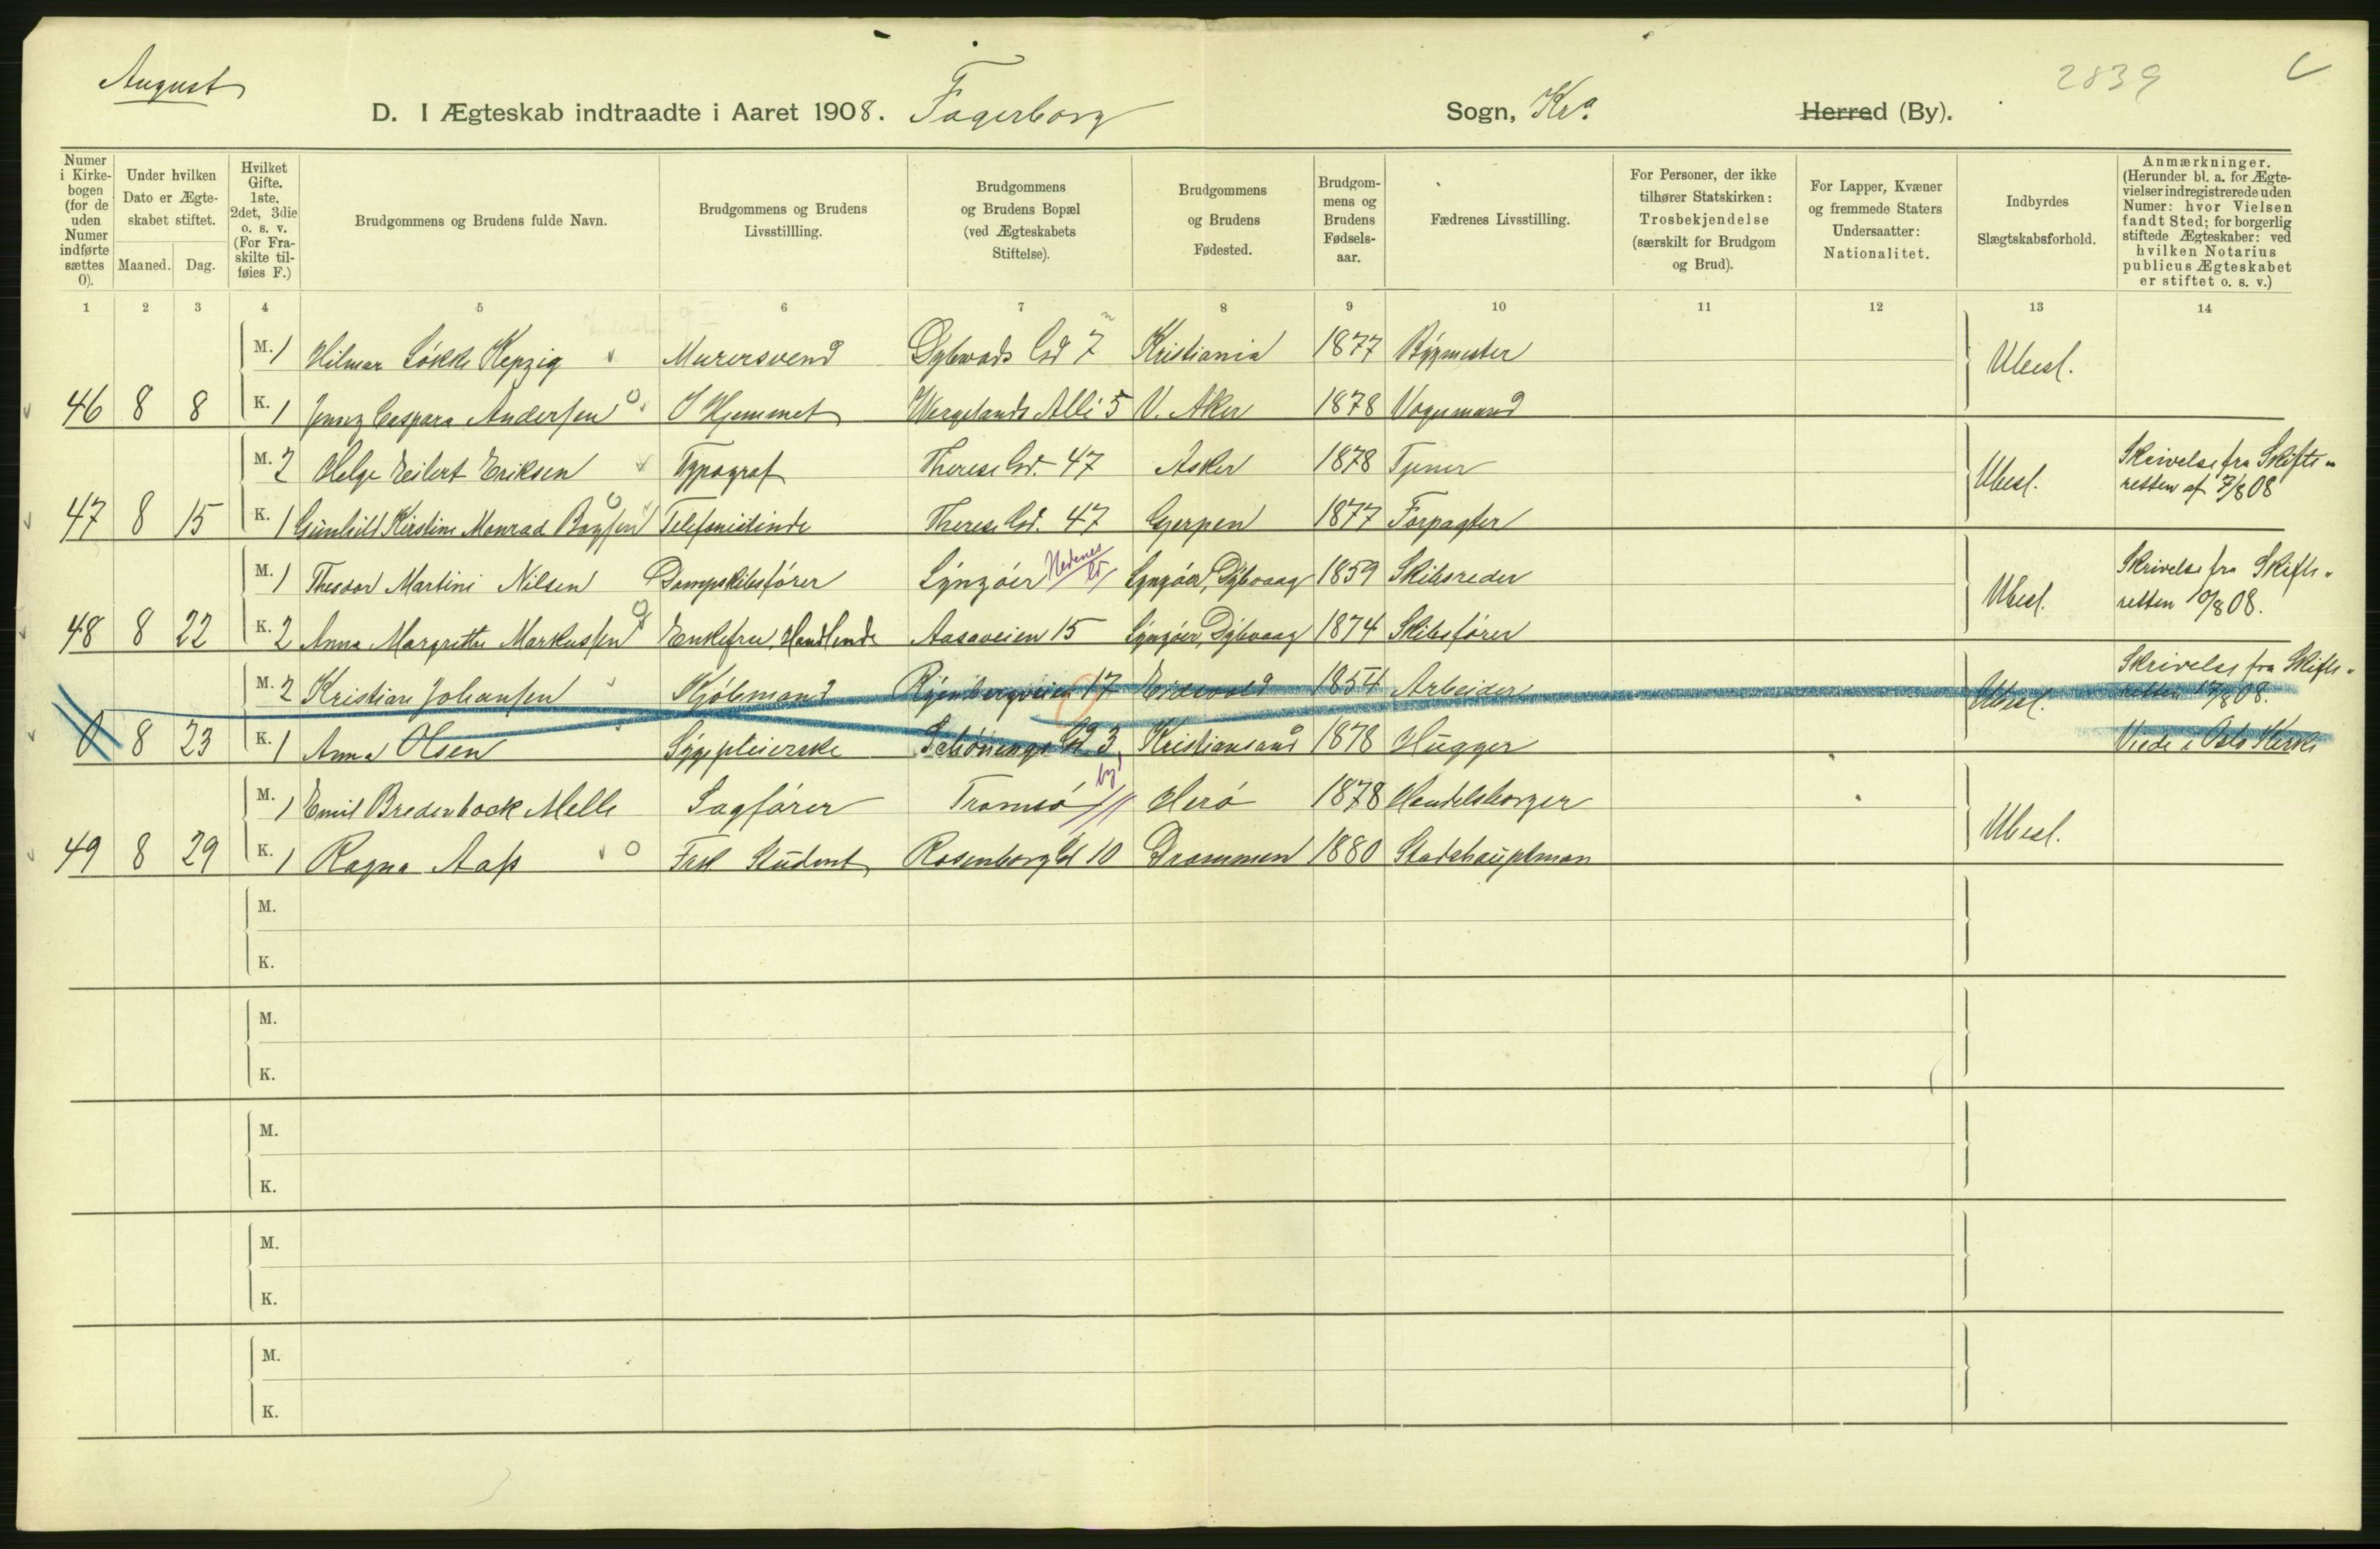 August
2839
D. I Ægteskab indtraadte i Aaret 1908. Fagerborg Sogn, Kra. Herred (By).
Numer i Kirkebogen (for de uden Numer indførte sættes 0).
Under hvilken Dato er Ægteskabet stiftet.
Maaned. Dag.
Hvilket Gifte. 1ste, 2det, 3die o. s. v. (For Fraskilte tilføies F.)
Brudgommens og Brudens fulde Navn.
Brudgommens og Brudens Livsstillling.
Brudgommens og Brudens Bopæl (ved Ægteskabets Stiftelse).
Brudgommens og Brudens Fødested.
Brudgommens og Brudens Fødselsaar.
Fædrenes Livsstilling.
For Personer, der ikke tilhører Statskirken: Trosbekjendelse (særskilt for Brudgom og Brud).
For Lapper, Kvæner og fremmede Staters Undersaatter: Nationalitet.
Indbyrdes Slægtskabsforhold.
Anmærkninger. (Herunder bl. a. for Ægtevielser indregistrerede uden Numer: hvor Vielsen fandt Sted; for borgerlig stiftede Ægteskaber: ved hvilken Notarius publicus Ægteskabet er stiftet o. s. v.)
1 2 3 4 5 6 7 8 9 10 11 12 13 14
M. 1 Hilmar Løkke Hepzig Murersvend Dybwads Gd 7 Kristiania 1877 Bygmester Ubesl.
46 8 8 K. 1 Jenny Caspara Andersen I Hjemmet Wergelands Allé 5 V. Aker 1878 Vognmand
M. 2 Helge Eilert Eriksen Typograf Therese Gd. 47 Asker 1878 Tjener Ubesl. Skrivelse fra Skifteretten af 7/8 08
47 8 15 K. 1 Gunhild Kirstine Monrad Boysen Telefonistinde Therese Gd. 47 Gjerpen 1877 Forpagter
M. 1 Theodor Martini Nilsen Dampskibsfører Lyngøer Lyngøer, Dybvaag 1859 Skibsreder Ubesl. Skrivelse fra Skifteretten 10/8 08.
48 8 22 K. 2 Anna Margrethe Markussen Enkefru, Handlende Aasaveien 15 Lyngøer, Dybvaag 1874 Skibsfører
M. 2 Kristian Johansen Kjøbmand 17 Eidsvold 1854 Arbeider Ubesl. Skrivelse fra Skifteretten 17/8 08.
0 8 23 K. 1 Anna Olsen Sygepleierske Schønings Gd 3 Kristiansand 1878 Hugger Viede i Oslo Kirke
M. 1 Emil Bredenbock Melle Sagfører Tromsø by Herø 1878 Handelsborger Ubesl.
49 8 29 K. 1 Ragna Aass Frk. Student Rosenborg Gd 10 Drammen 1880 Stadshauptman
M.
K.
M.
K.
M.
K.
M.
K.
M.
K.